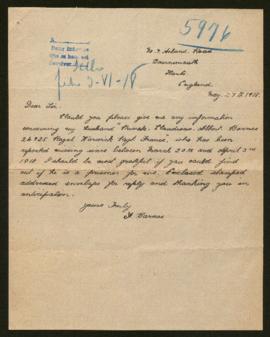 5976
Road
Bournemouth
Hants
England
May 27th 1918.
Dear Sir,
Could you please give me any information
concerning my husband Private Albert Barnes
Royal Warwick Regt France, who has been
reported missing between March 20th and April 3rd
1918. I should be most grateful if you could find
out if he is a prisoner for me. Enclosed stamped
addressed envelope for reply and thanking you in
anticipation.
Yours truly
A Barnes